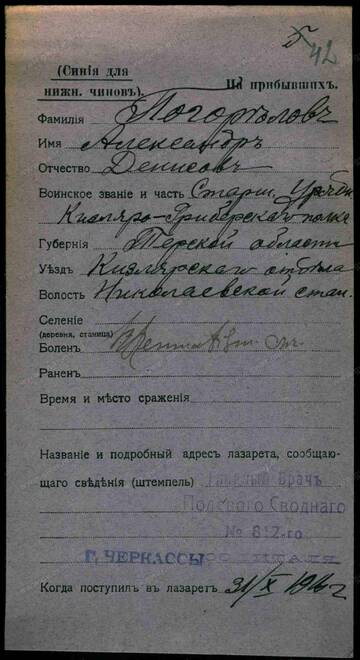 42
(Синія для
нижн. чиновъ).
На прибывшихъ.
Фамилія Погорѣловъ
Имя Александръ
Отчество Денисовъ
Воинское званіе и часть Старш. Урядн.
Кизляро-Гребенскаго полка
Губернія Терской области
Уѣздъ Кизлярскаго отдѣла
Волость Николаевской стан.
Селеніе
(деревня, станица)
Боленъ
Раненъ
Время и мѣсто сраженія
Названіе и подробный адресъ лазарета, сообщаю-
щаго свѣдѣнія (штемпель) Главный Врачъ
Полевого Своднаго
№ 812-го
Г. ЧЕРКАССЫ ГОСПИТАЛЯ
Когда поступилъ въ лазаретъ 31/X 1916 г